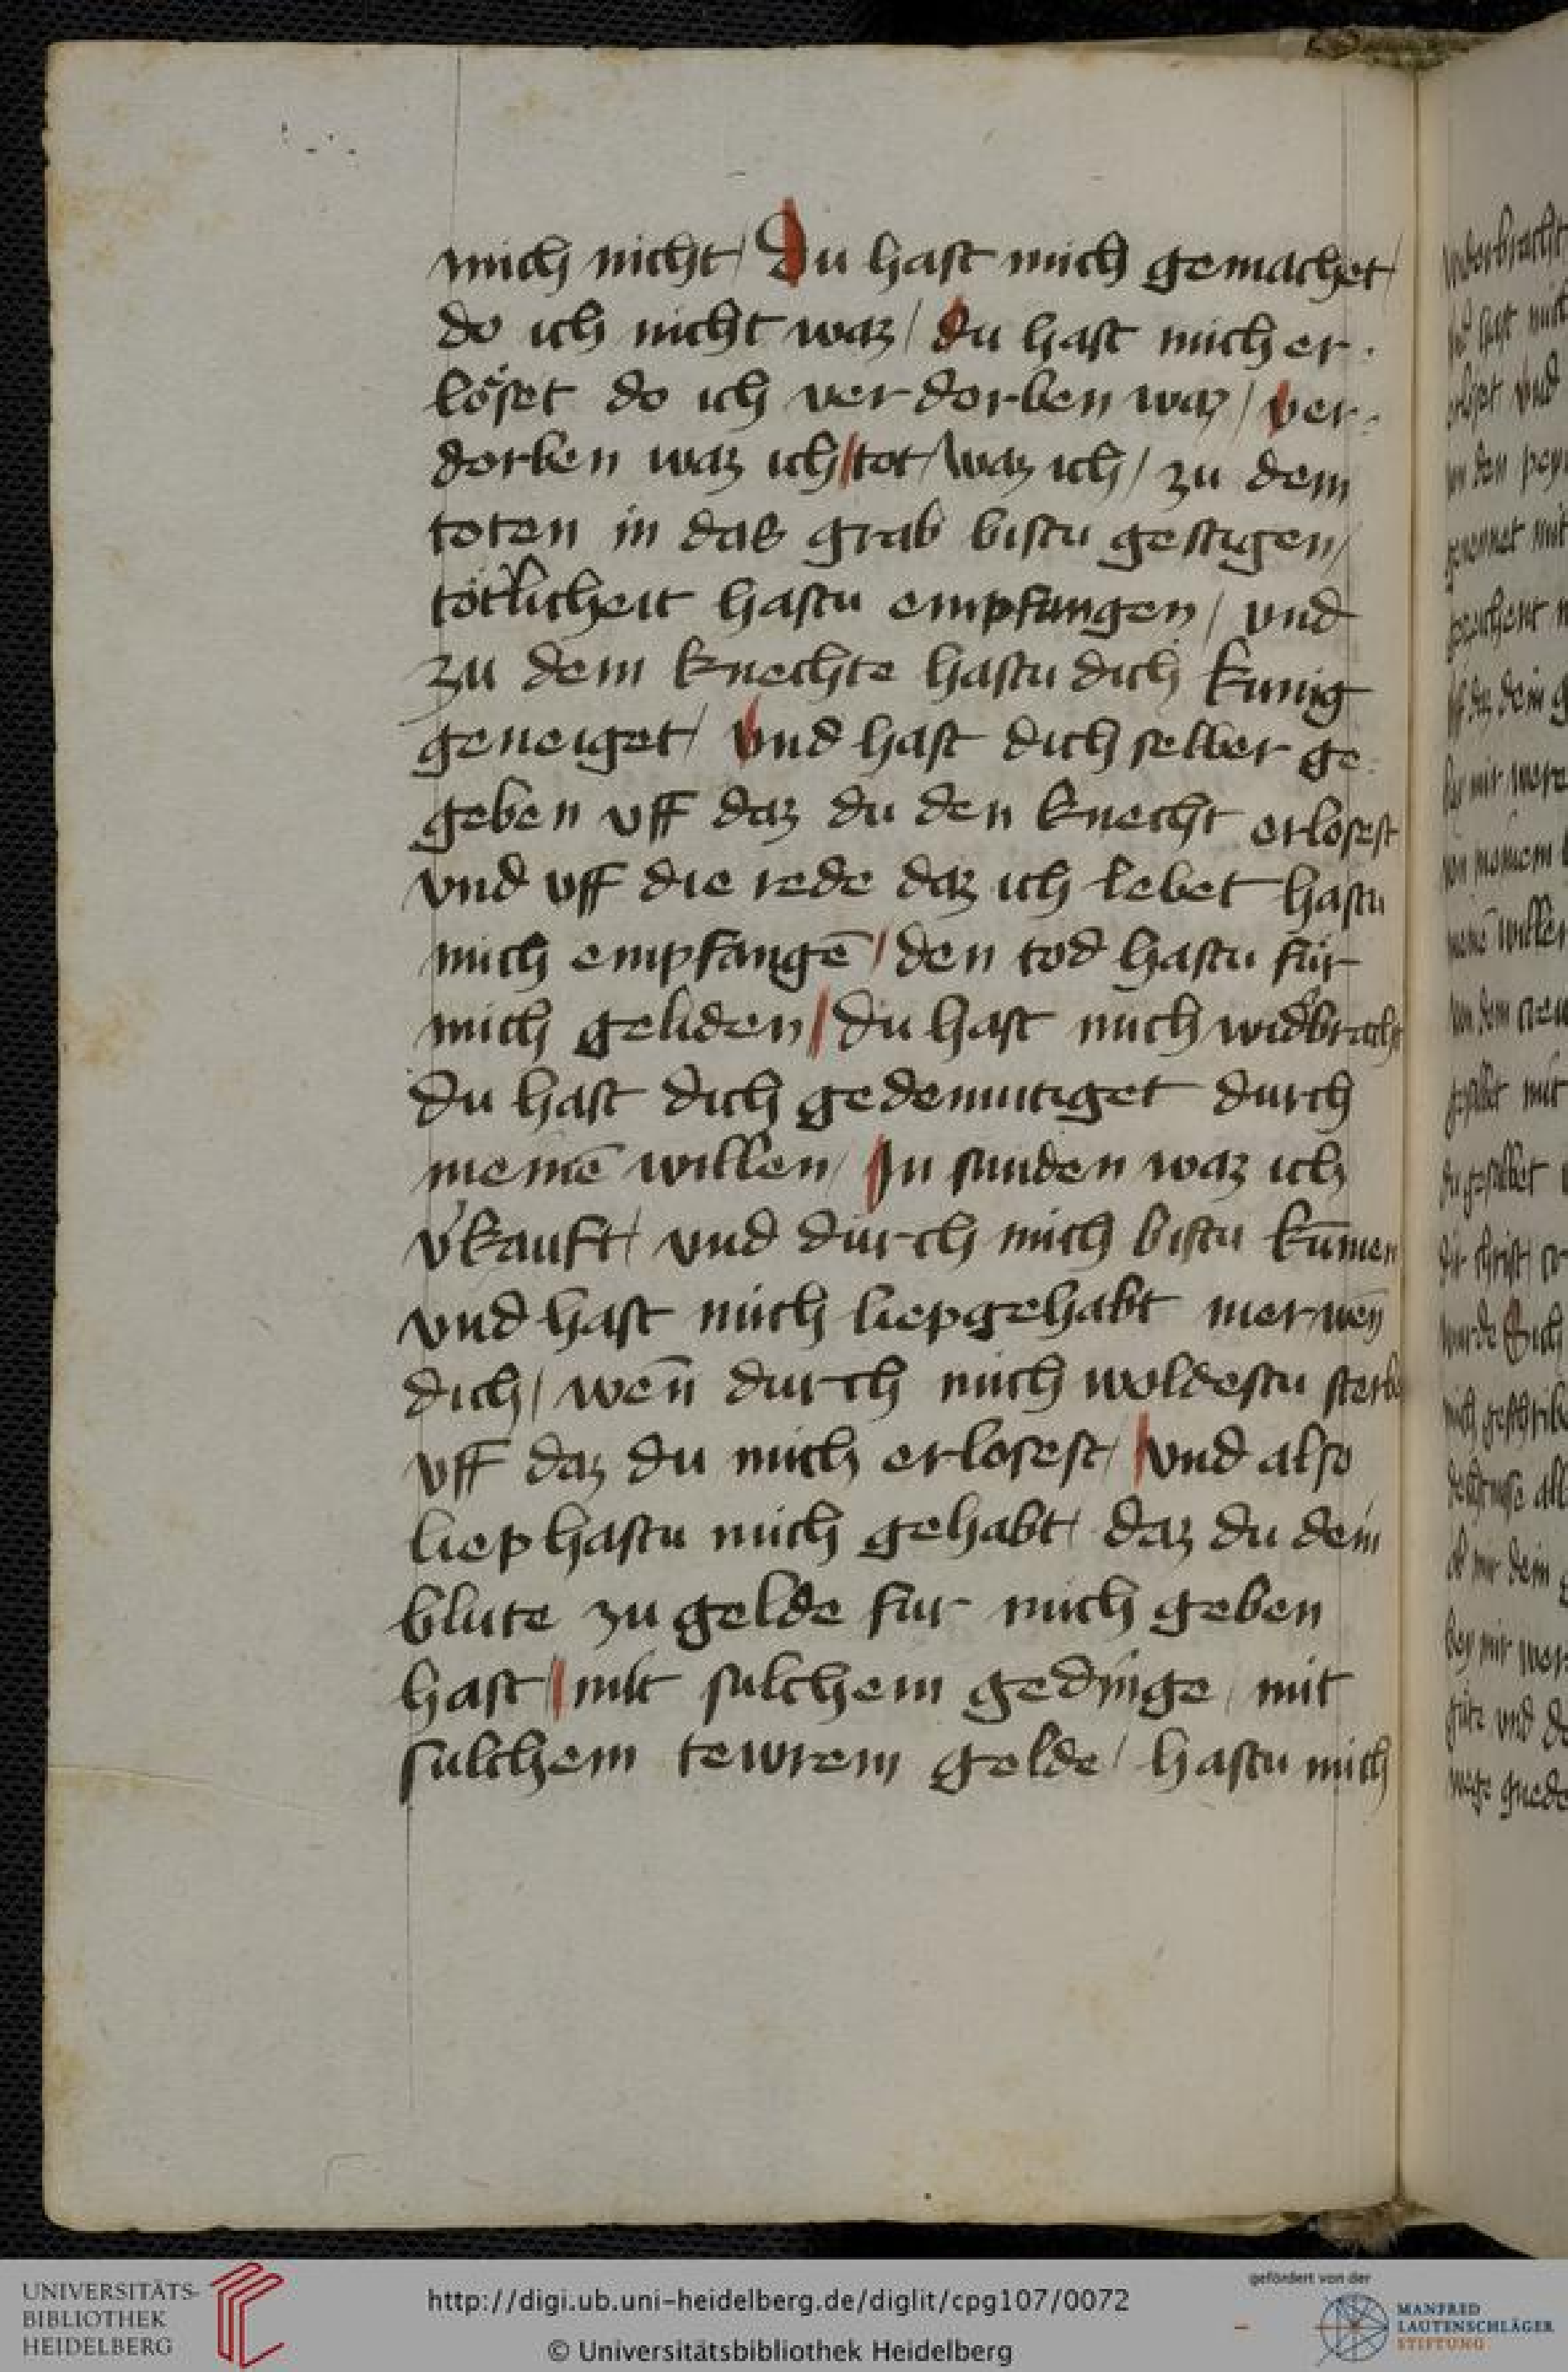 mich nicht / Du hast mich gemachet /
do ich nicht waz / du hast mich er-
löset do ich verdorben waz / ver-
dorben waz ich / tot / waz ich / zu dem
toten in das grab bistu gestigen /
tötlicheit hastu empfangen / vnd
zu dem knechte hastu dich kunig
geneiget / Vnd hast dich selber ge-
geben vff daz du den knecht erlosest
vnd vff die rede daz ich lebet hastu
mich empfangē / den tod hastu für
mich geliden / du hast mich wid'bracht
du hast dich gedemutiget durch
meinē willen / In sunden waz ich
v'kauft / vnd durch mich bistu kūmen
vnd hast mich liepgehabt mer wēn
dich / wēn durch mich woldestu sterbē
vff daz du mich erlosest / vnd also
liep hastu mich gehabt / daz du dein
blute zu gelde fur mich geben
hast / mit sulchem gedinge / mit
sulchem tewrem gelde / hastu mich
UNIVERSITÄTS-
BIBLIOTHEK
HEIDELBERG
http://digi.ub.uni-heidelberg.de/diglit/cpg107/0072
© Universitätsbibliothek Heidelberg
gefördert von der
MANFRED
LAUTENSCHLÄGER
STIFTUNG